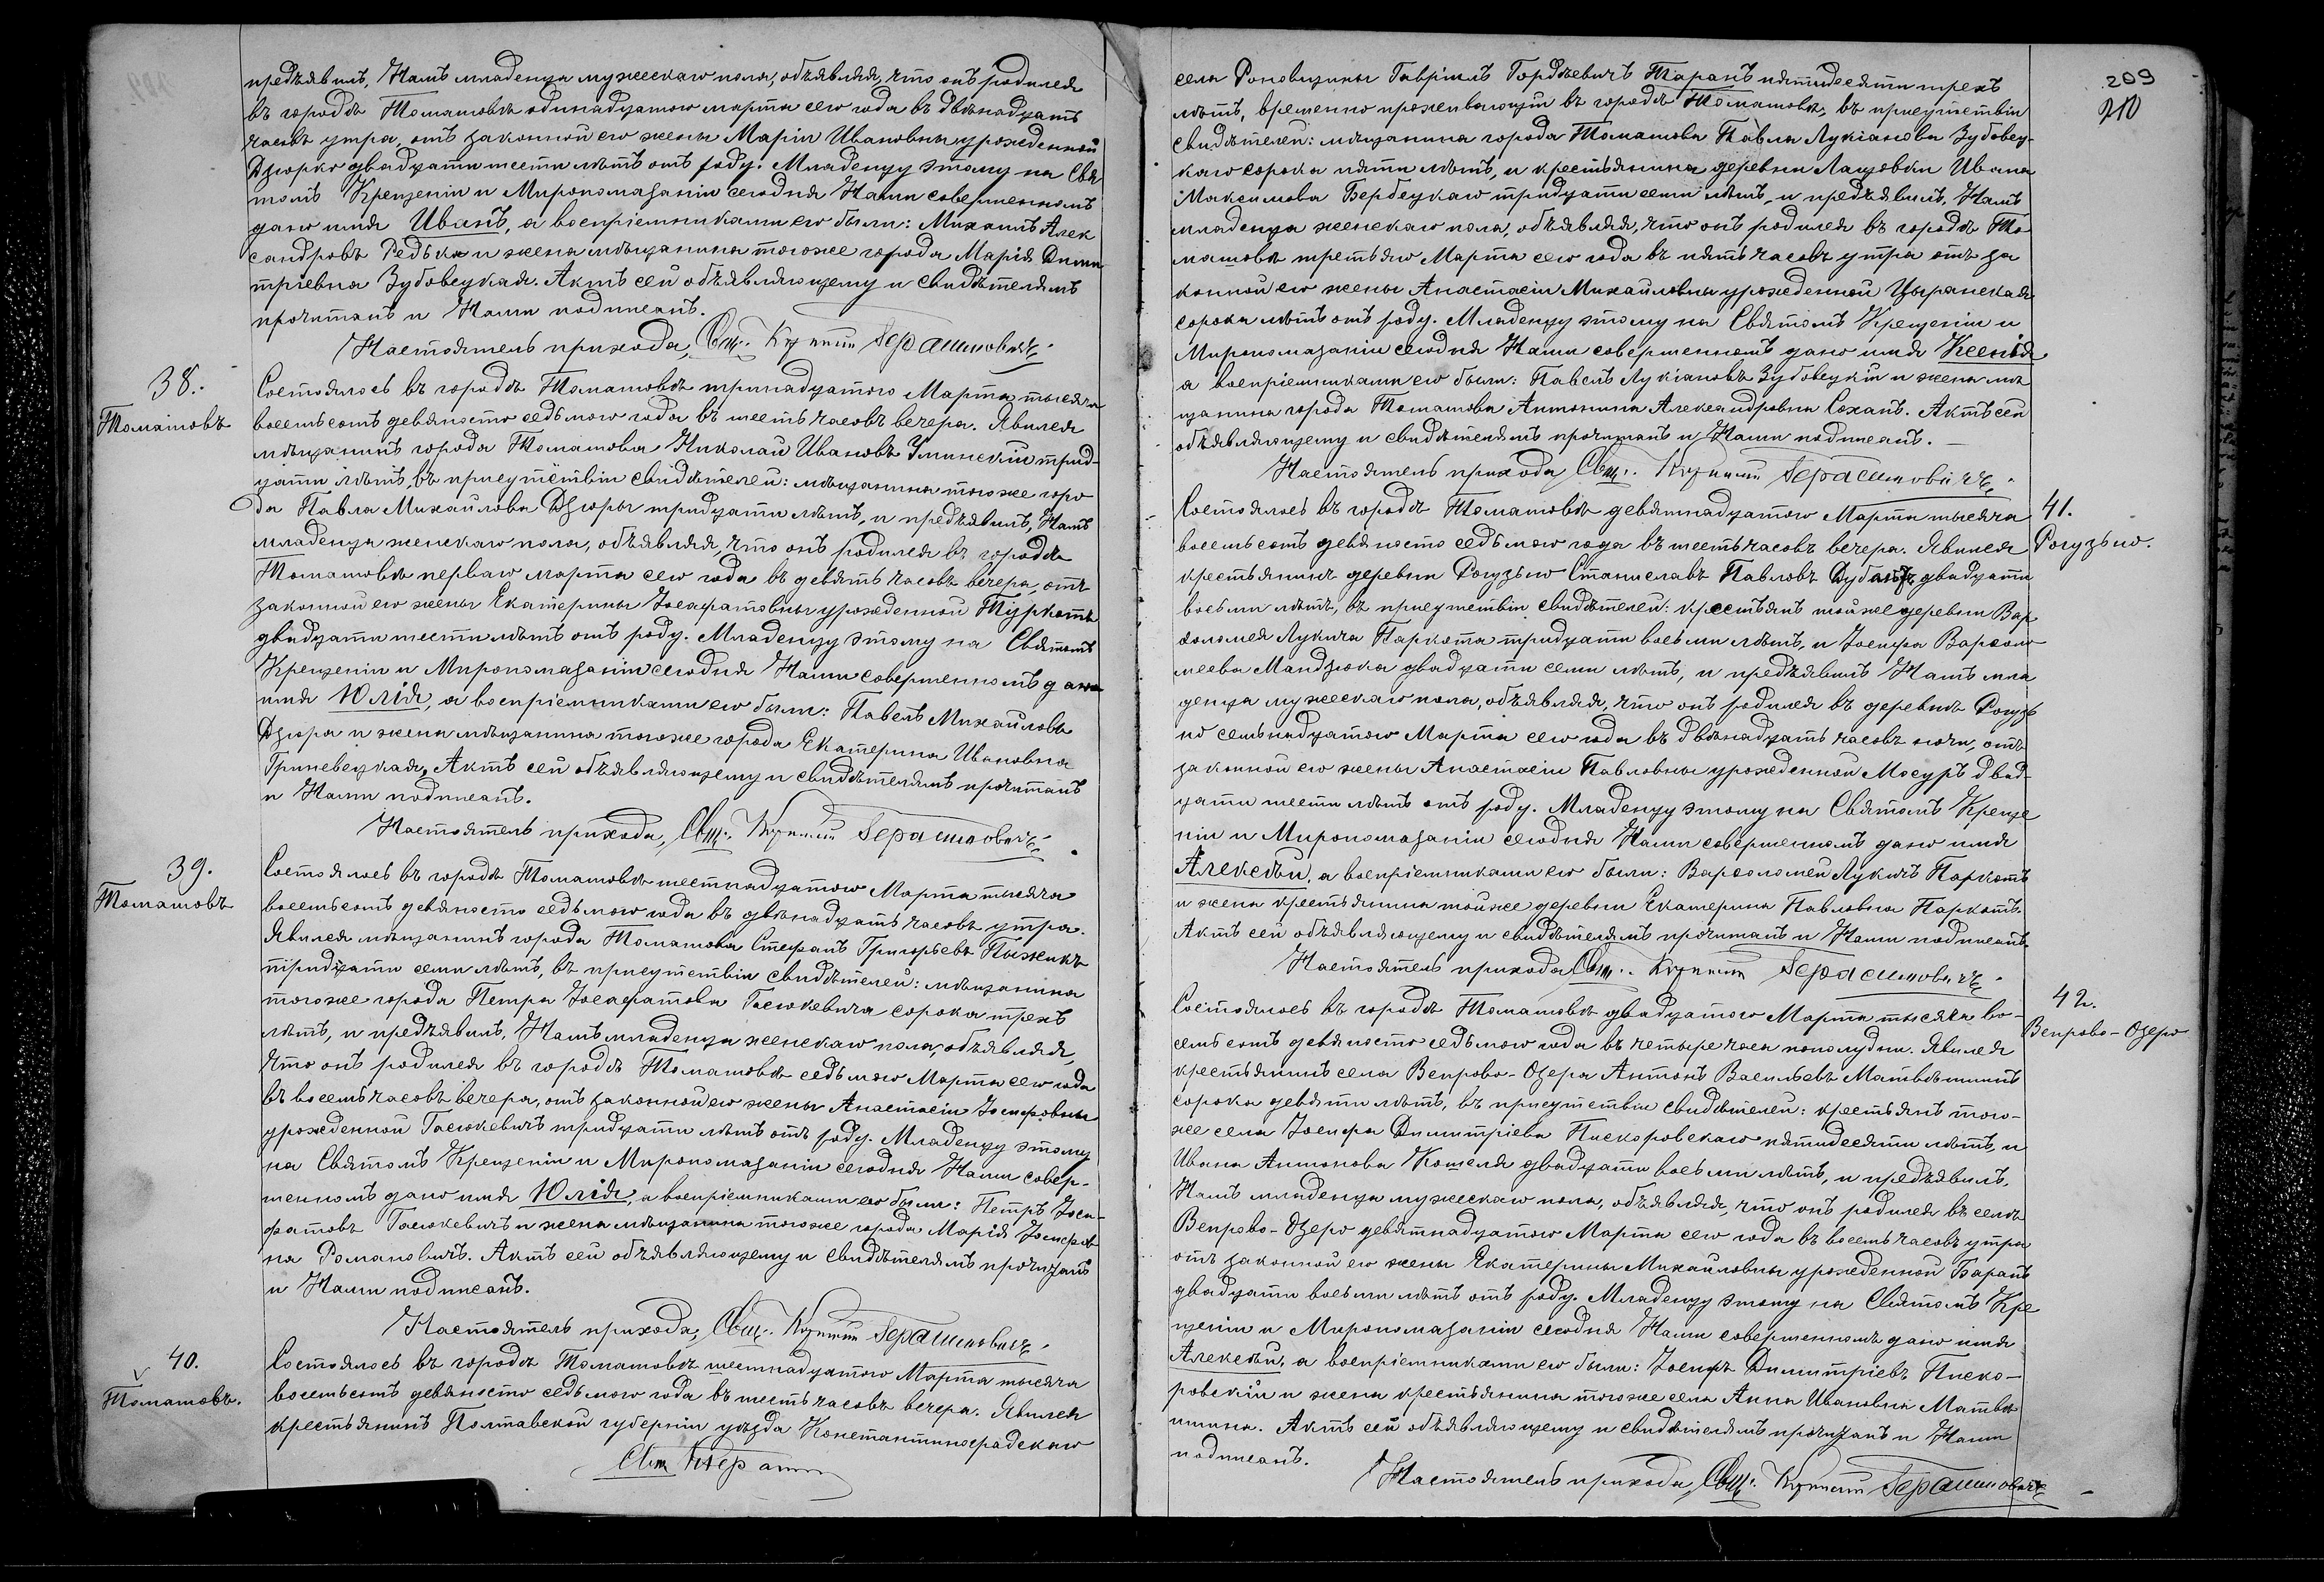 предъявилъ, Намъ младенца мужескаго пола, объявляя, что онъ родился
въ городѣ Томашовѣ одинадцатого марта сего года въ двѣнадцать
часовъ утра, отъ законной его жены Маріи Ивановны урожденной
Дзюрко двадцати шести лѣтъ отъ роду. Младенцу этому на Свя
томъ Крещеніи и Миропомазаніи сегодня Нами совершенномъ
дано имя Иванъ, а воспріемниками его были: Михаилъ Алек
сандровъ Редька и жена мѣщанина тогоже города Марія Дими
тріевна Зубовецкая. Актъ сей объявляющему и свидѣтелямъ
прочитанъ и Нами подписанъ.
Настоятель прихода, Свщ. Герасимовичъ
38.
Томашовъ
Состоялось въ городѣ Томашовѣ тринадцатого Марта тысяча
восемьсотъ девяносто седьмого года въ шесть часовъ вечера. Явился
мѣщанинъ города Томашова Николай Ивановъ Улинскій трид-
цати лѣтъ, въ присутствіи свидѣтелей: мѣщанина тогоже горо
да Павла Михайлова Дзюры тридцати лѣтъ, и предъявилъ, Намъ
младенца женскаго пола, объявляя, что онъ родился въ городѣ
Томашовѣ перваго марта сего года въ девять часовъ вечера, отъ
законной его жены Екатерины Іосафатовны урожденной Туркотъ
двадцати шести лѣтъ отъ роду. Младенцу этому на Святомъ
Крещеніи и Миропомазаніи сегодня Нами совершенномъ дано
имя Юлія, а воспріемниками его были: Павелъ Михайловъ
Дзюра и жена мѣщанина тогоже города Екатерина Ивановна
Гриневецкая. Актъ сей объявляющему и свидѣтелямъ прочитанъ
и Нами подписанъ.
Настоятель прихода, Свщ. Герасимовичъ
39.
Томашовъ
Состоялось въ городѣ Томашовѣ шестнадцатого Марта тысяча
восемьсотъ девяносто седьмого года въ двѣнадцать часовъ утра.
Явился мѣщанинъ города Томашова Стефанъ Григорьевъ Пыжикъ
тридцати семи лѣтъ, въ присутствіи свидѣтелей: мѣщанина
тогоже города Петра Іосафатова Гасюкевича сорока трехъ
лѣтъ, и предъявилъ, Намъ младенца женскаго пола, объявляя,
что онъ родился въ городѣ Томашовѣ седьмого Марта сего года
въ восемь часовъ вечера, отъ законной его жены Анастасіи Іосифовны
урожденной Гасюкевичъ тридцати лѣтъ отъ роду. Младенцу этому
на Святомъ Крещеніи и Миропомазаніи сегодня Нами совер-
шенномъ дано имя Юлія, а воспріемниками его были: Петръ Іоса-
фатовъ Гасюкевичъ и жена мѣщанина тогоже города Марія Іосифов
на Романовичъ. Актъ сей объявляющему и свидѣтелямъ прочитанъ
и Нами подписанъ.
Настоятель прихода, Свщ. Герасимовичъ
40.
Томашовъ.
Состоялось въ городѣ Томашовѣ шестнадцатого Марта тысяча
восемьсотъ девяносто седьмого года въ шесть часовъ вечера. Явился
крестьянинъ Полтавской губерніи уѣзда Константиноградскаго
209
210
села Роновщины Гавріилъ Гордѣевичъ Таранъ пятидесяти трехъ
лѣтъ, временно проживающій въ городѣ Томашовѣ, въ присутствіи
свидѣтелей: мѣщанина города Томашова Павла Лукіанова Зубовец-
каго сорока пяти лѣтъ, и крестьянина деревни Лащовки Ивана
Максимова Бербецкаго тридцати семи лѣтъ, и предъявилъ, Намъ
младенца женскаго пола, объявляя, что онъ родился въ городѣ То
машовѣ третьяго Марта сего года въ пять часовъ утра отъ за
конной его жены Анастасіи Михайловны урожденной Цыранская
сорока лѣтъ отъ роду. Младенцу этому на Святомъ Крещеніи и
Миропомазаніи сегодня Нами совершенномъ дано имя Ксенія
а воспріемниками его были: Павелъ Лукіановъ Зубовецкій и жена мѣ
щанина города Томашова Антонина Александровна Соханъ. Актъ сей
объявляющему и свидѣтелямъ прочитанъ и Нами подписанъ.
Настоятель прихода Свщ. Герасимовичъ
41.
Рогузьно.
Состоялось въ городѣ Томашовѣ девятнадцатого Марта тысяча
восемьсотъ девяносто седьмого года въ шесть часовъ вечера. Явился
крестьянинъ деревни Рогузьно Станиславъ Павловъ двадцати
восьми лѣтъ, въ присутствіи свидѣтелей: крестьянъ тойже деревни Вар
ѳоломея Лукича Паркота тридцати восьми лѣтъ, и Іосифа Варѳоло
меева Мандзюка двадцати семи лѣтъ, и предъявилъ Намъ мла
денца мужескаго пола, объявляя, что онъ родился въ деревнѣ Рогузь
но семьнадцатого Марта сего года въ двѣнадцать часовъ ночи, отъ
законной его жены Анастасіи Павловны урожденной Мосуръ двад-
цати шести лѣтъ отъ роду. Младенцу этому на Святомъ Креще
ніи и Миропомазаніи сегодня Нами совершенномъ дано имя
Алексѣй, а воспріемниками его были: Варѳоломей Лукичъ Паркотъ
и жена крестьянина тойже деревни Екатерина Павловна Паркотъ.
Актъ сей объявляющему и свидѣтелямъ прочитанъ и Нами подписанъ
Настоятель прихода Свщ. Герасимовичъ
42.
Вепрово-Озеро
Состоялось въ городѣ Томашовѣ двадцатого Марта тысяча во-
семьсотъ девяносто седьмого года въ четыре часа пополудни. Явился
крестьянинъ села Вепрово-Озера Антонъ Васильевъ Матвѣишинъ
сорока девяти лѣтъ, въ присутствіи свидѣтелей: крестьянъ того-
же села Іосифа Димитріева Пискоровскаго пятидесяти лѣтъ, и
Ивана Антонова Кошеля двадцати восьми лѣтъ, и предъявилъ,
Намъ младенца мужескаго пола, объявляя, что онъ родился въ селѣ
Вепрово-Озеро девятнадцатого Марта сего года въ восемь часовъ утра
отъ законной его жены Екатерины Михайловны урожденной Баранъ
двадцати восьми лѣтъ отъ роду. Младенцу этому на Святомъ Кре
щеніи и Миропомазаніи сегодня Нами совершенномъ дано имя
Алексѣй, а воспріемниками его были: Іосифъ Димитріевъ Писко-
ровскій и жена крестьянина тогоже села Анна Ивановна Матвѣ
ишина. Актъ сей объявляющему и свидѣтелямъ прочитанъ и Нами
подписанъ.
Настоятель прихода, Свщ. Герасимовичъ